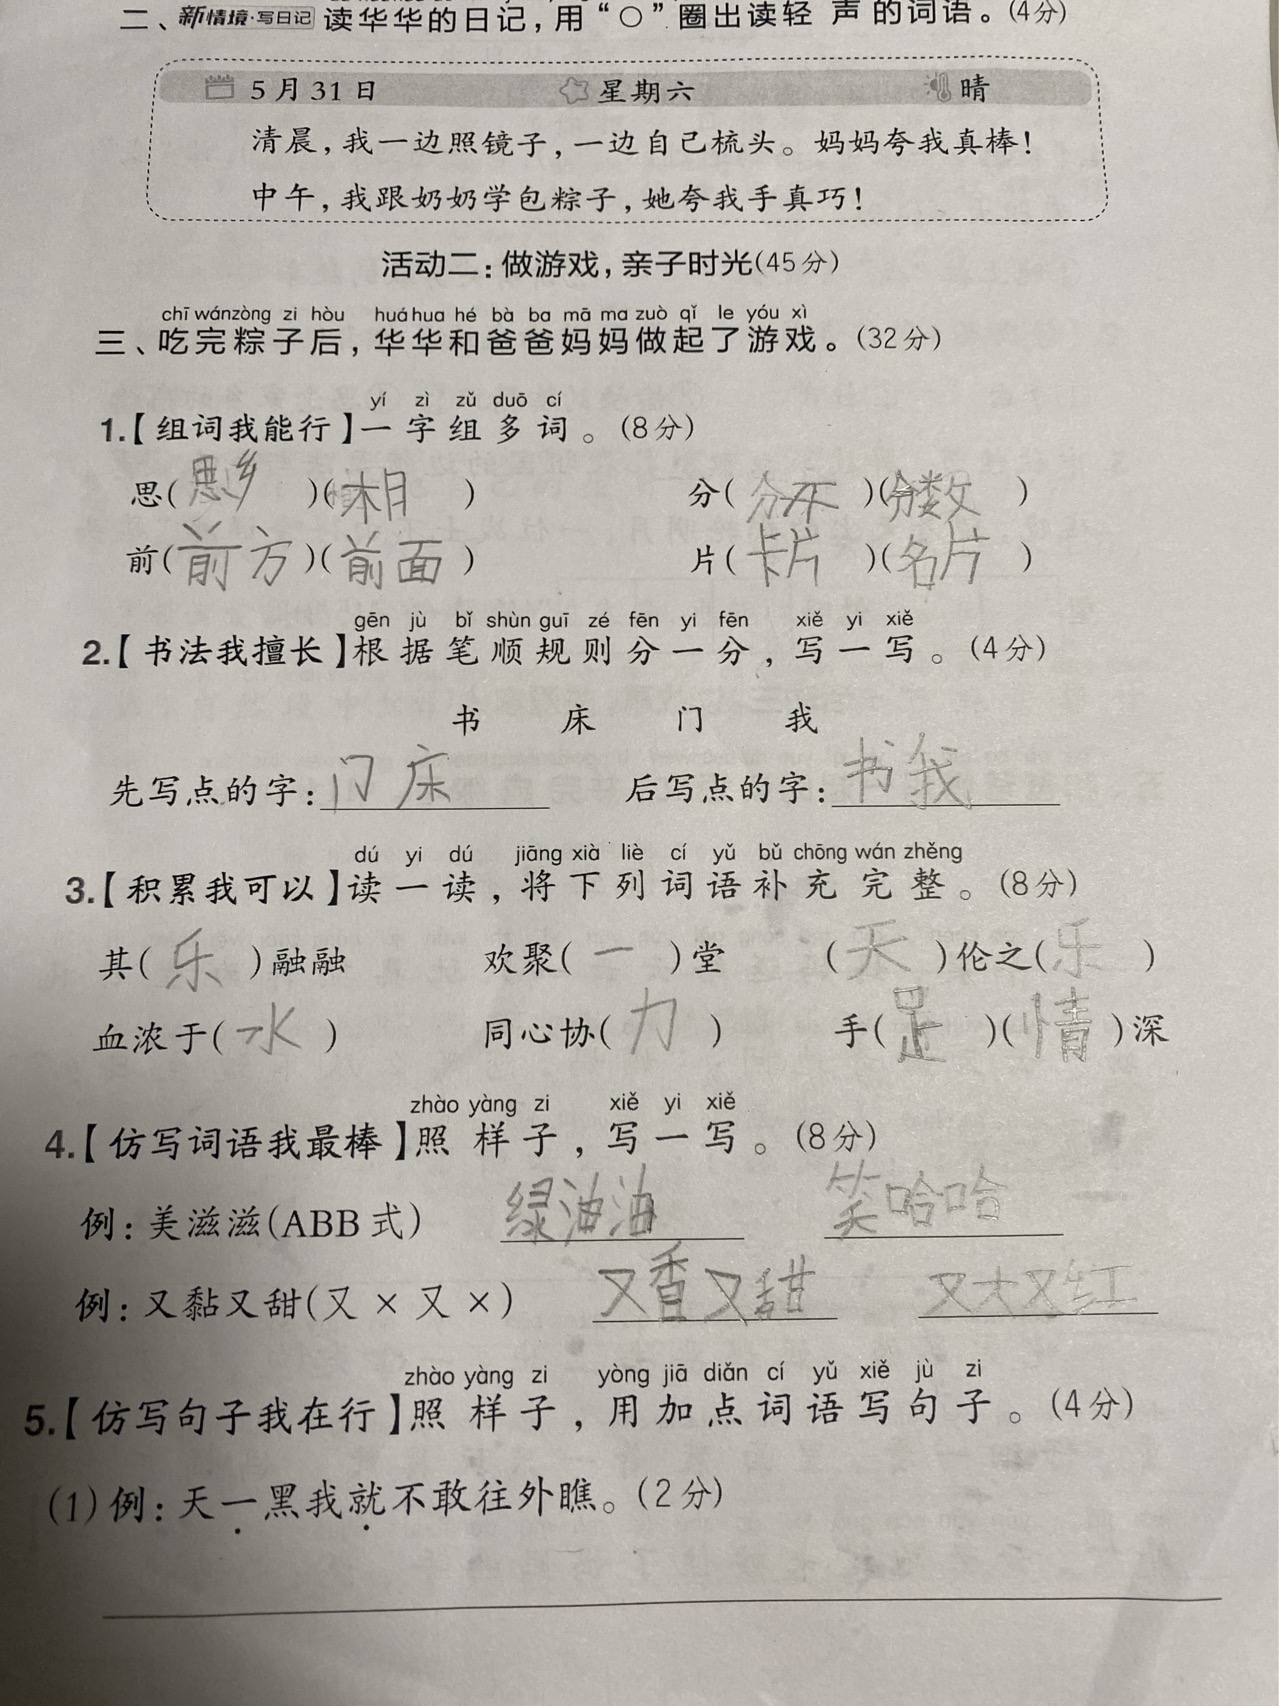 二、新情境·写日记 读华华的日记，用“○”圈出读轻声的词语。(4分)
5月31日 星期六 晴
清晨，我一边照镜子，一边自己梳头。妈妈夸我真棒！
中午，我跟奶奶学包粽子，她夸我手真巧！
活动二：做游戏，亲子时光(45分)
chī wánzòng zi hòu huá hua hé bà ba mā ma zuò qǐ le yóu xì
三、吃完粽子后，华华和爸爸妈妈做起了游戏。(32分)
yí zì zǔ duō cí
1.【组词我能行】一字组多词。(8分)
思(思乡)(相) 分(分不)(分数)
前(前方)(前面) 片(卡片)(名片)
gēn jù bǐ shùn guī zé fēn yi fēn xiě yi xiě
2.【书法我擅长】根据笔顺规则分一分，写一写。(4分)
书 床 门 我
先写点的字：门床 后写点的字：书我
dú yi dú jiāng xià liè cí yǔ bǔ chōng wán zhěng
3.【积累我可以】读一读，将下列词语补充完整。(8分)
其(乐)融融 欢聚(一)堂 (天)伦之(乐)
血浓于(水) 同心协(力) 手(足)(情)深
zhào yàng zi xiě yi xiě
4.【仿写词语我最棒】照样子，写一写。(8分)
例：美滋滋(ABB式) 绿油油 笑哈哈
例：又黏又甜(又×又×) 又香又甜 又大又红
zhào yàng zi yòng jiā diǎn cí yǔ xiě jù zi
5.【仿写句子我在行】照样子，用加点词语写句子。(4分)
(1)例：天一黑我就不敢往外瞧。(2分)